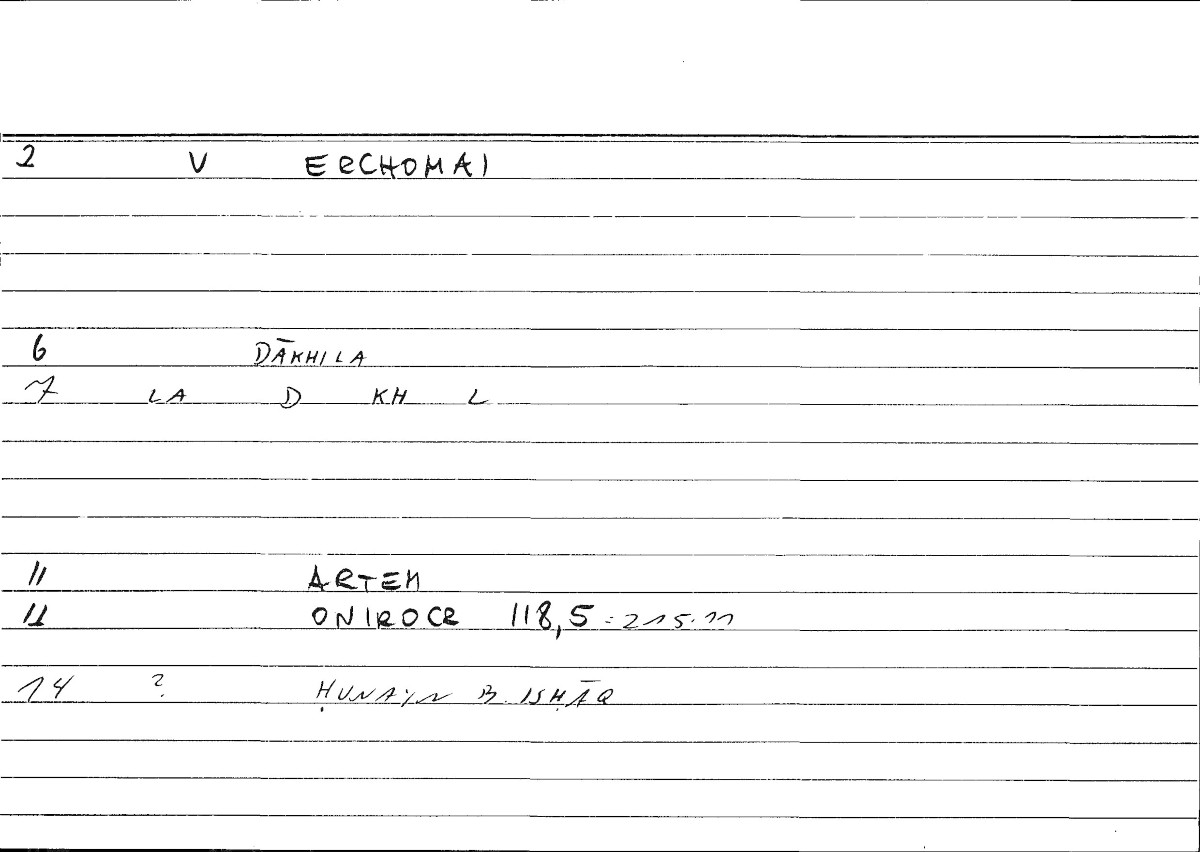 2 V ERCHOMAI
6 DĀKHILA
7 LA D KH L
11 ARTEM
11 ONIROCR 118,5 = 215.11
14 ? ḤUNAYN B. ISḤĀQ